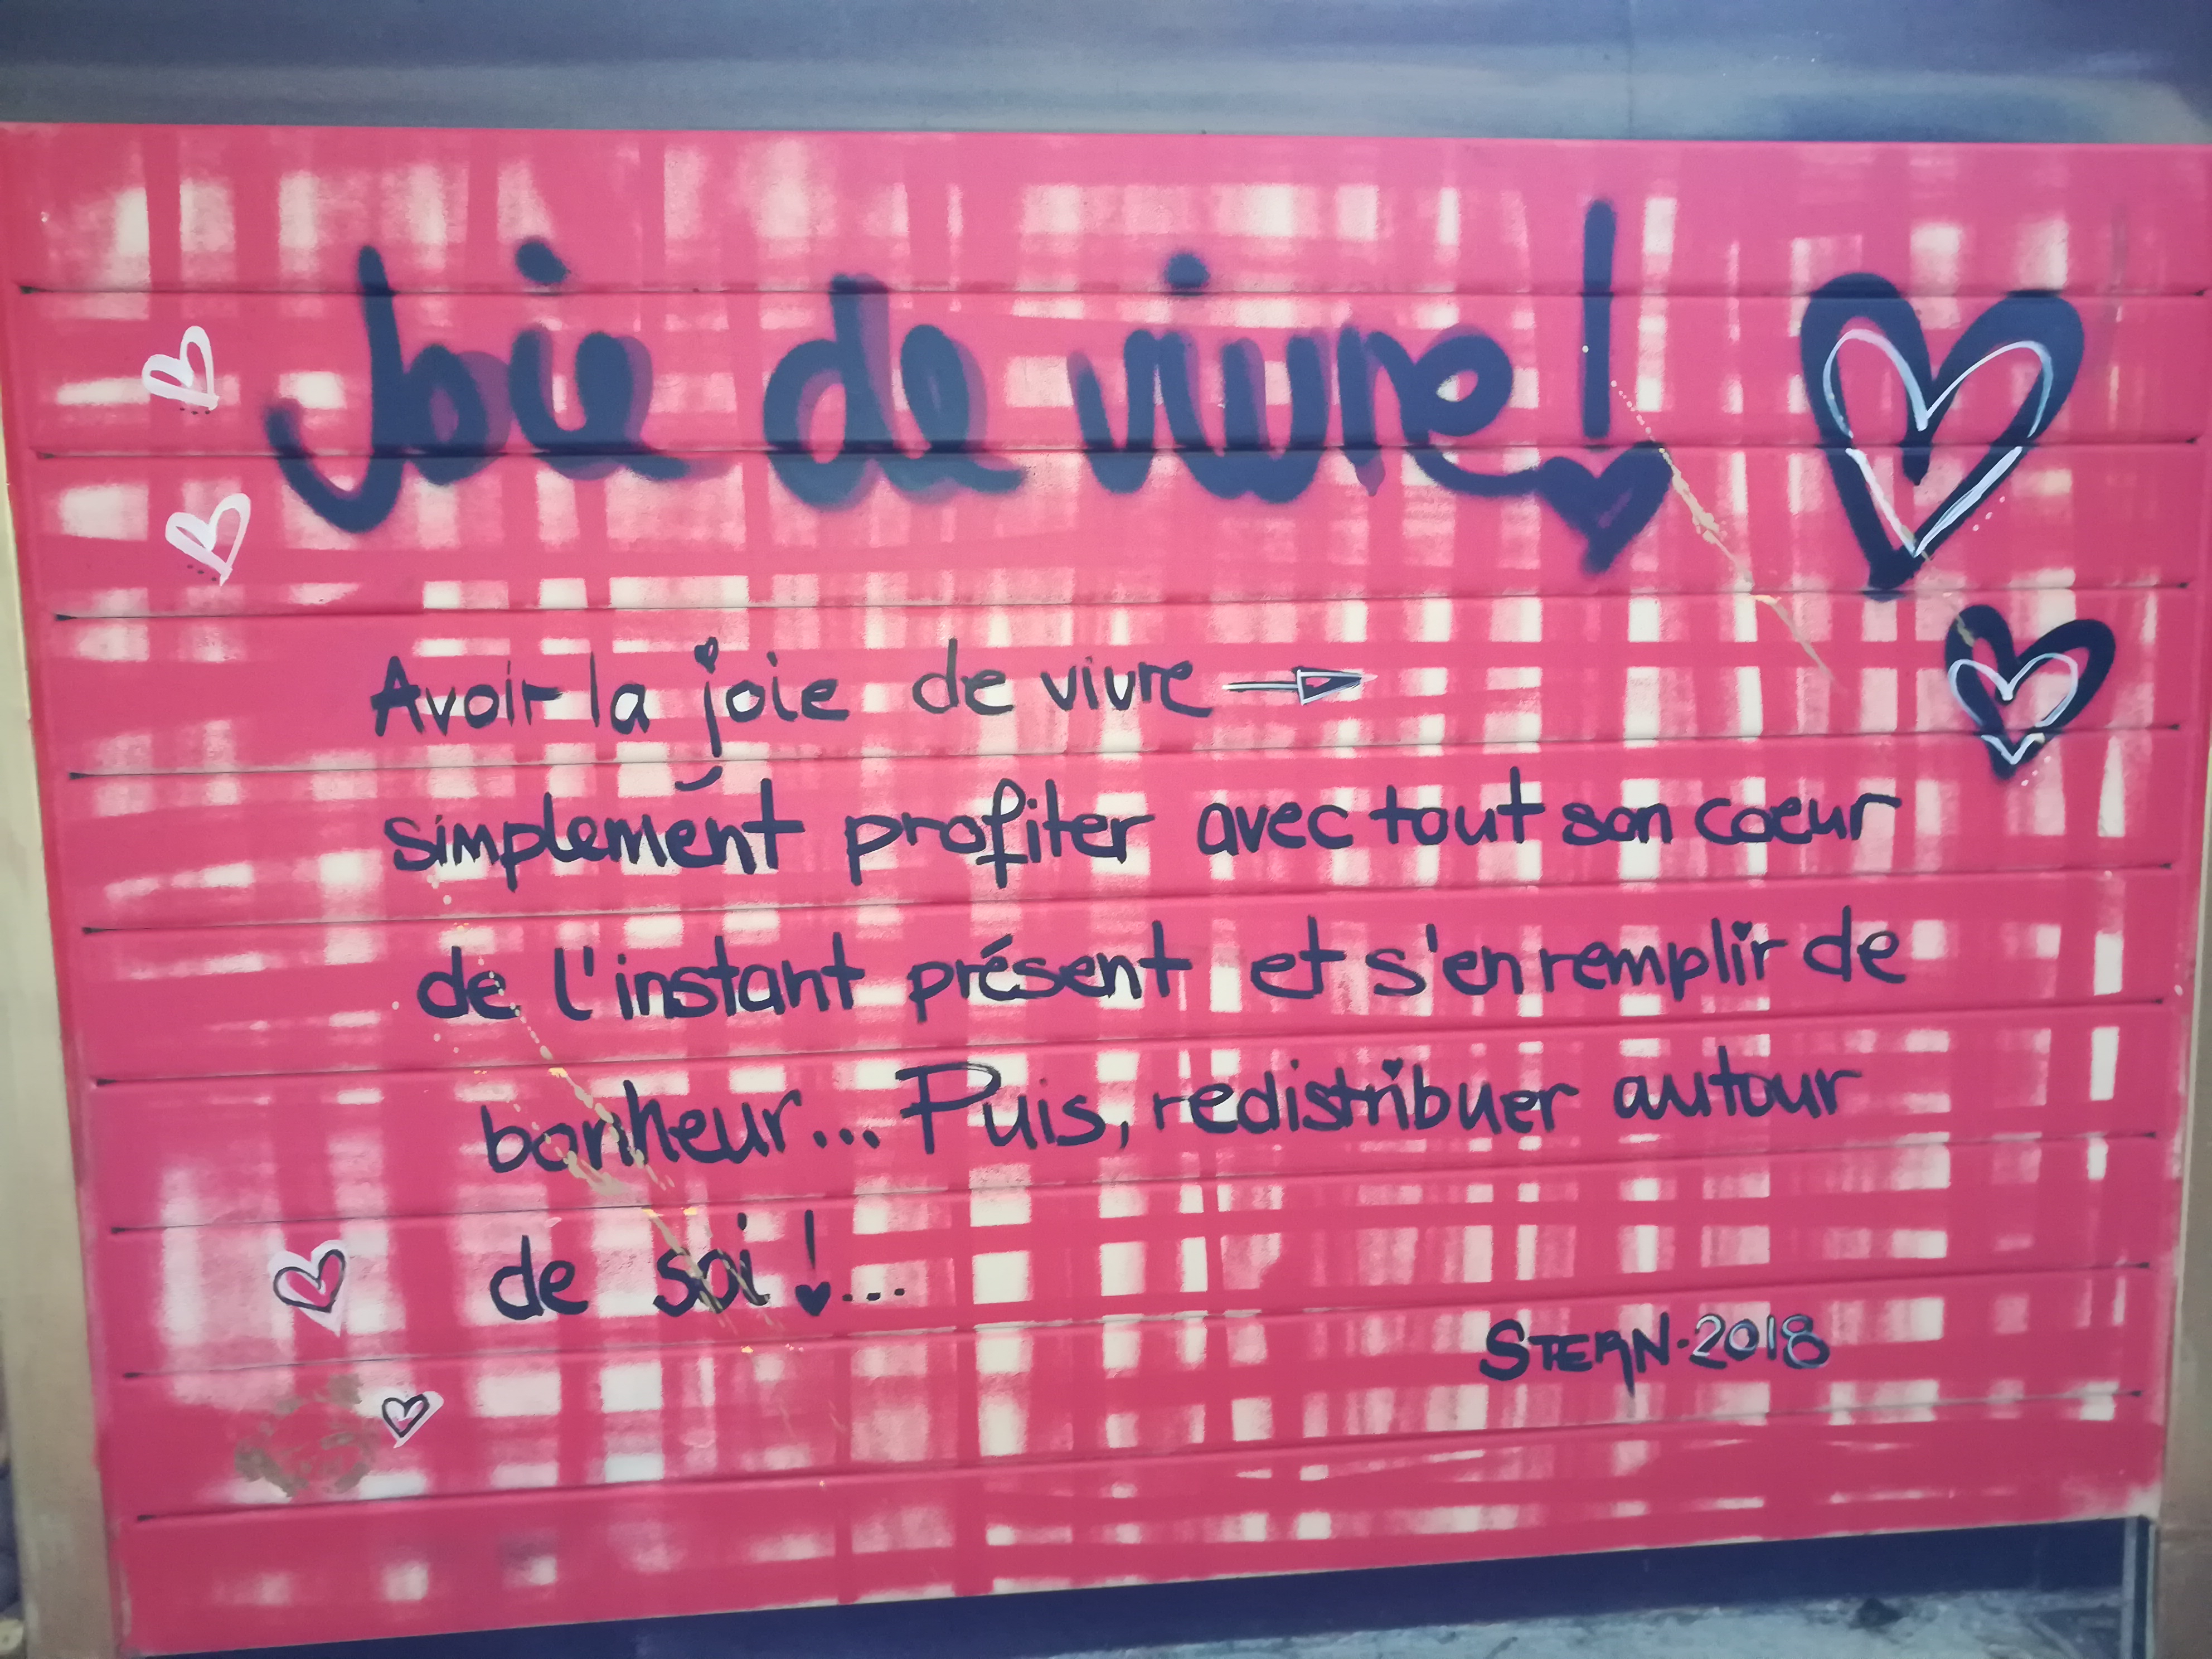 Joie de vivre!
Avoir la joie de vivre →
simplement profiter avec tout son coeur
de l'instant présent et s'en remplir de
bonheur... Puis, redistribuer autour
de soi!...
STERN.2018